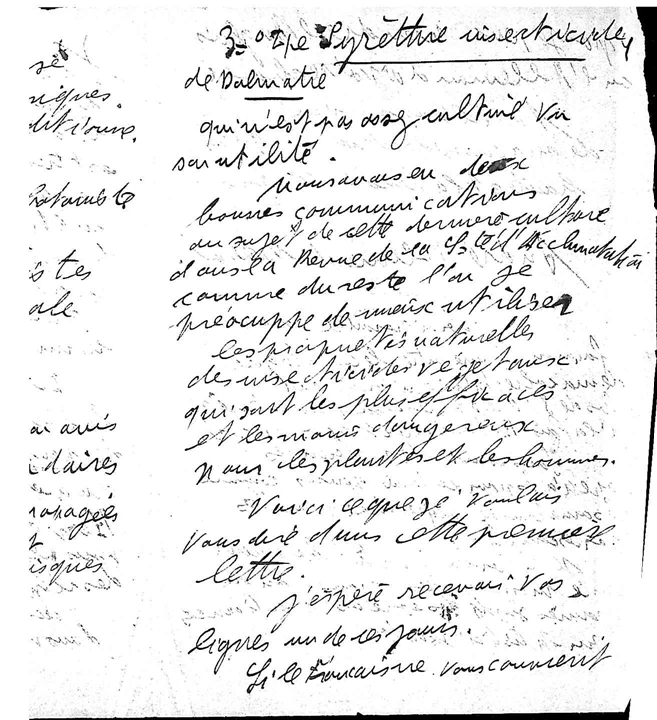 sé
niques.
ditions.
botaniste
istes
ale
avis
daires
ropagées
t
isques
3º Le Pyrèthre insecticide,
de Dalmatie
qui n'est pas assez cultivé vu
son utilité.
Nous avons eu deux
bonnes communications
au sujet de cette dernière culture
dans la Revue de la Sté d'Acclimatation
comme du reste l'on se
préoccupe de mieux utiliser
les propriétés naturelles
des insecticides vegetaux
qui sont les plus efficaces
et les moins dangereux
pour les plantes et les hommes.
Voici ce que je voulais
vous dire dans cette première
lettre.
J'espère recevoir vos
lignes un de ces jours.
Si le Francaisne vous convient